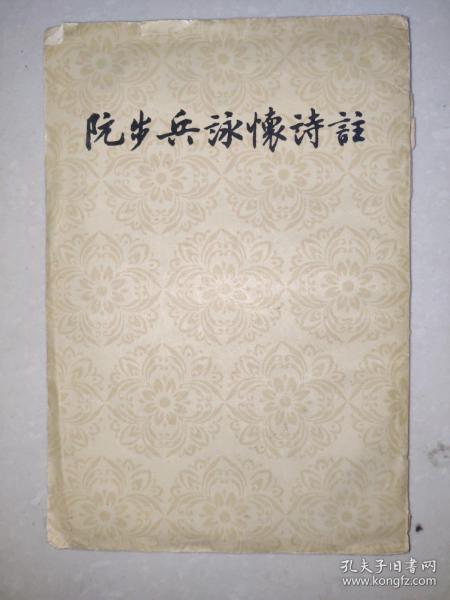 阮步兵詠懷詩註
孔夫子旧书网
www.kongfz.com